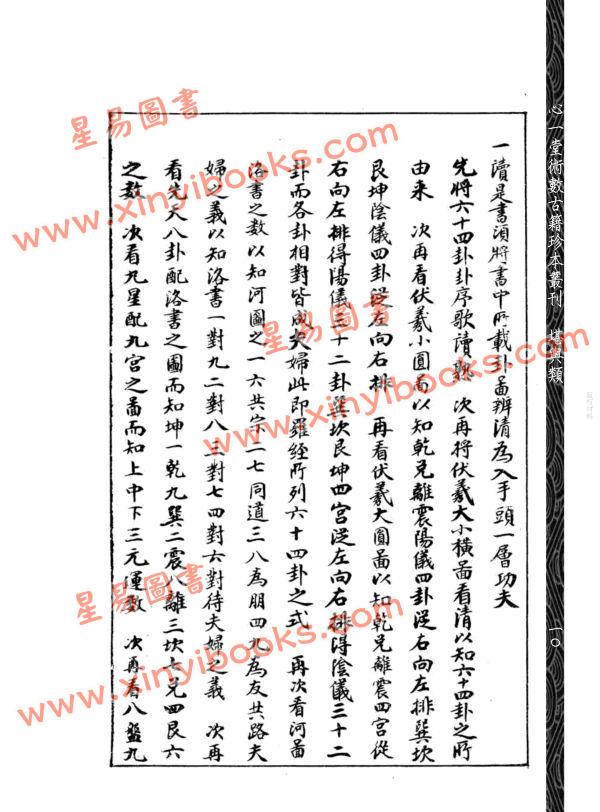 心一堂術數古籍珍本叢刊 堪輿類
一讀是書須將書中所載卦圖辨清為入手頭一層功夫
先將六十四卦卦序歌讀熟 次再將伏羲大小橫圖看清以知六十四卦之所
由來 次再看伏羲小圓圖以知乾兌離震陽儀四卦從右向左排巽坎
艮坤陰儀四卦從左向右排 再看伏羲大圓圖以知乾兌離震四宮從
右向左排得陽儀三十二卦巽坎艮坤四宮從左向右排得陰儀三十二
卦而各卦相對皆成夫婦此即羅經所列六十四卦之式 再次看河圖
洛書之數以知河圖之一六共宗二七同道三八為朋四九為友共路夫
婦之義以知洛書一對九二對八三對七四對六對待夫婦之義 次再
看先天八卦配洛書之圖而知坤一乾九巽二震八離三坎七兌四艮六
之數 次看九星配九宮之圖而知上中下三元運數 次再看八盤九
一〇
星易圖書
www.xinyibooks.com
星易圖書
www.xinyibooks.com
星易圖書
www.xinyibooks.com